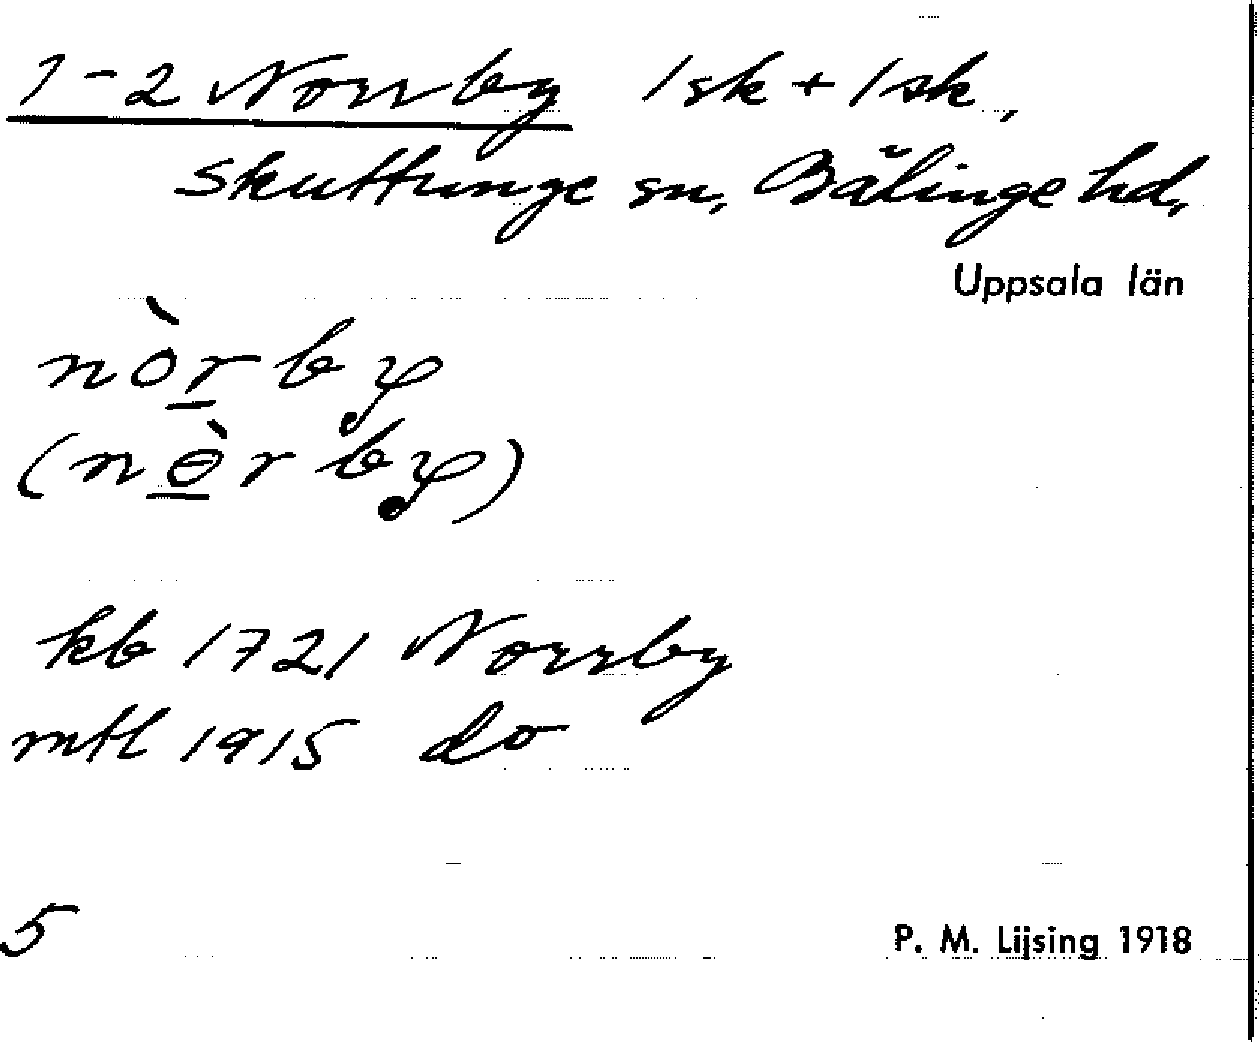 1-2 Norrby 1 sk + 1 sk,
Skuttunge sn, Bälinge hd,
Uppsala län
nòrby̥
(nɵ̀rby̥)
kb 1721 Norrby
mtl 1915 do
5
P. M. Lijsing 1918